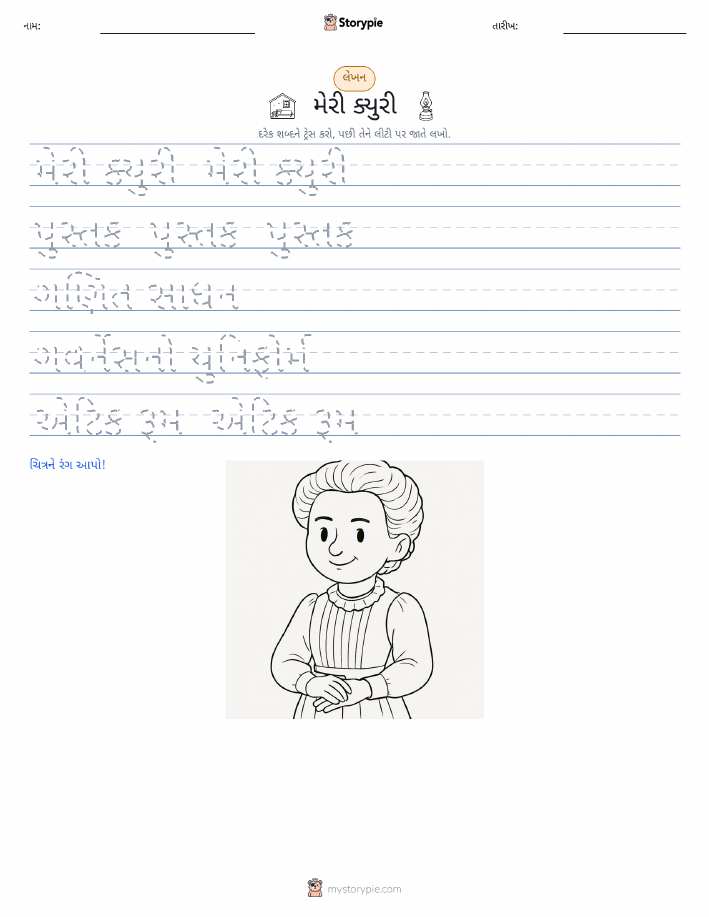 નામ:
Storypie
તારીખ:
લેખન
મેરી ક્યુરી
દરેક શબ્દને ટ્રેસ કરો, પછી તેને લીટી પર જાતે લખો.
મેરી ક્યુરી મેરી ક્યુરી
પુસ્તક પુસ્તક પુસ્તક
ગણિત સાધન
ગવર્નેસનો યુનિફોર્મ
એટિક રૂમ એટિક રૂમ
ચિત્રને રંગ આપો!
mystorypie.com